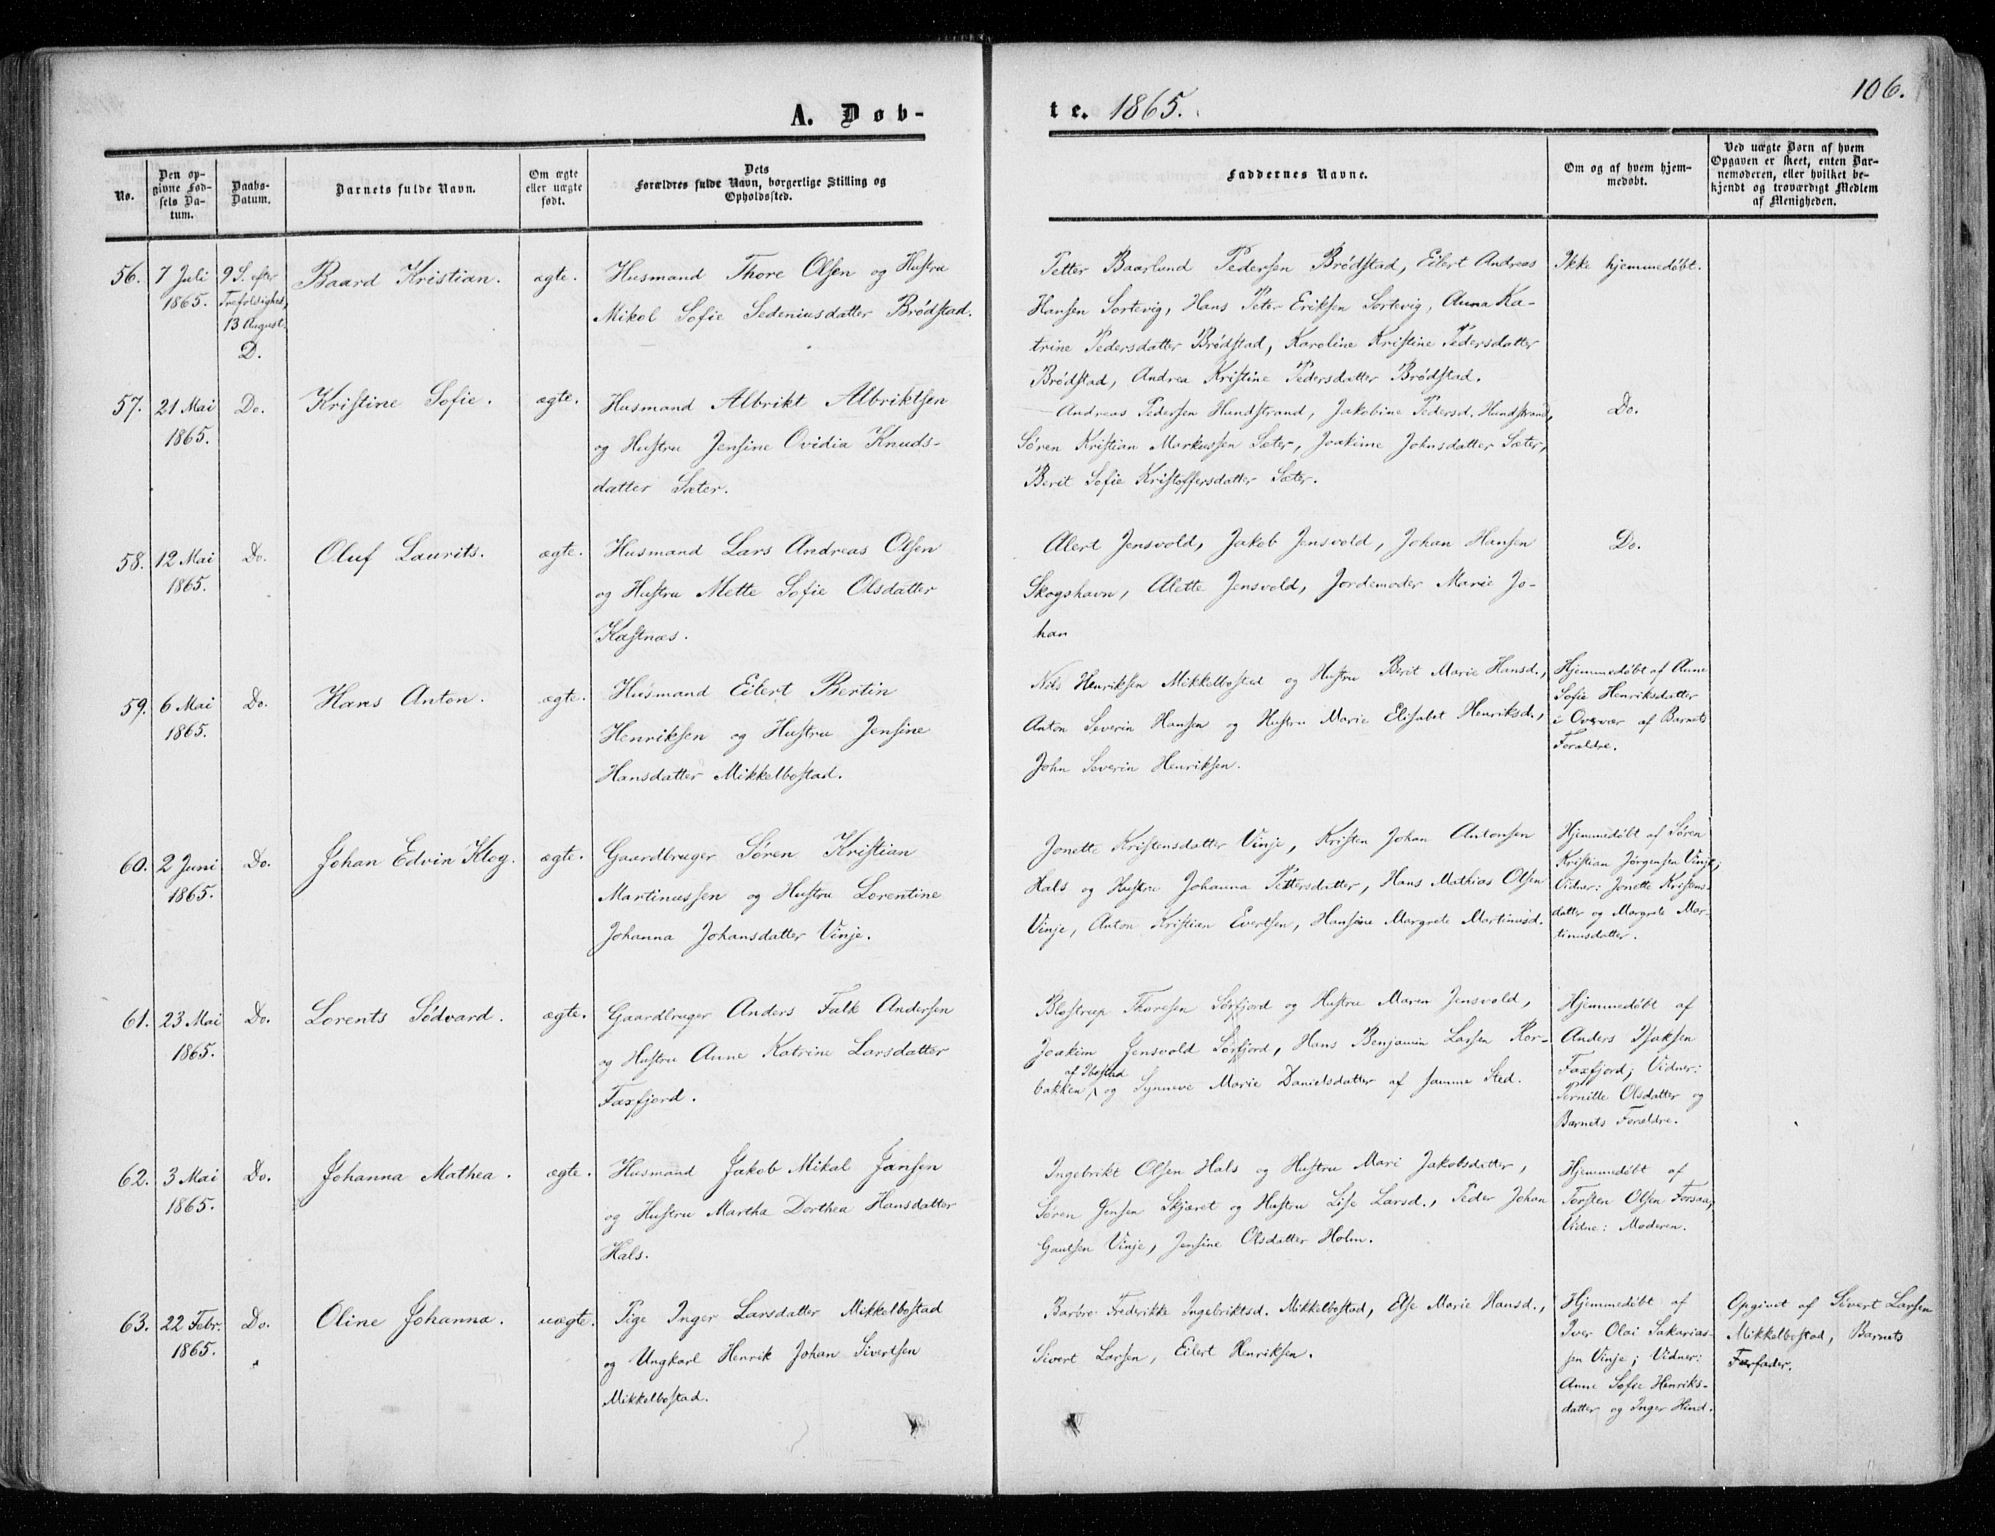 106.
A. Døb-
te. 1865.
No.
Den op-
givne Fød-
sels Da-
tum.
Daabs-
Datum.
Barnets fulde Navn.
Om ægte
eller uægte
født.
Dets
Forældres fulde Navn, borgerlige Stilling og
Opholdssted.
Faddernes Navne.
Om og af hvem hjem-
medøbt.
Ved uægte Børn af hvem
Opgaven er skeet, enten Bar-
nemoderen, eller hvilket be-
kjendt og troværdigt Medlem
af Menigheden.
56.
7 Juli
1865.
9 S. efter
Trefoldighed,
13 August.
D.
Baard Kristian.
ægte.
Husmand Thore Olsen og Hustru
Mikol Sofie Sedeniusdatter Brødstad.
Petter Baarlund Pedersen Brødstad, Eilert Andreas
Hansen Sortevig, Hans Peter Eriksen Sortevig, Anna Ka-
trine Pedersdatter Brødstad, Karoline Kristine Pedersdatter
Brødstad, Andrea Kristine Pedersdatter Brødstad.
Ikke hjemmedøbt.
57.
21 Mai
1865.
Do.
Kristine Sofie.
ægte.
Husmand Albrikt Albriktsen
og Hustru Jensine Ovidia Knuds-
datter Sæter.
Andreas Pedersen Hundstrand, Jakobine Pedersd. Hundstrand,
Søren Kristian Markussen Sæter, Joakime Johnsdatter Sæter,
Berit Sofie Kristoffersdatter Sæter.
Do.
58.
12 Mai
1865.
Do.
Oluf Laurits.
ægte.
Husmand Lars Andreas Olsen
og Hustru Mette Sofie Olsdatter
Kastnæs.
Alert Jensvold, Jakob Jensvold, Johan Hansen
Skogshavn, Alette Jensvold, Jordemoder Marie Jo-
han
Do.
59.
6 Mai
1865.
Do.
Hans Anton.
ægte.
Husmand Eilert Bertin
Henriksen og Hustru Jensine
Hansdatter Mikkelbostad.
Nils Henriksen Mikkelbostad og Hustru Berit Marie Hansd.,
Anton Severin Hansen og Hustru Marie Elisabet Henriksd.,
John Severin Henriksen.
Hjemmedøbt af Anne
Sofie Henriksdatter
i Oversvær af Barnets
Forældre.
60.
2 Juni
1865.
Do.
Johan Edvin Klog.
ægte.
Gaardbruger Søren Kristian
Martinussen og Hustru Lorentine
Johanna Johansdatter Vinje.
Jonette Kristensdatter Vinje, Kristen Johan Antonsen
Hals og Hustru Johanna Pettersdatter, Hans Mathias Olsen
Vinje, Anton Kristian Evertsen, Hansine Margrete Martinusd.
Hjemmedøbt af Søren
Kristian Jørgensen Vinje;
Vidner: Jonette Kristens-
datter og Margrete Mar-
tinusdatter.
61.
23 Mai
1865.
Do.
Lorents Sødvard.
ægte.
Gaardbruger Anders Falk Andersen
og Hustru Anne Katrine Larsdatter
Faxfjord.
Blostrup Thoresen Sørfjord og Hustru Maren Jensvold,
Joakim Jensvold Sørfjord, Hans Benjamin Larsen Ror-
af Ibestad
bakken, og Synneve Marie Danielsdatter af samme Sted.
Hjemmedøbt af
Anders Isaksen
Faxfjord; Vidner:
Pernille Olsdatter og
Barnets Forældre.
62.
3 Mai
1865.
Do.
Johanna Mathea.
ægte.
Husmand Jakob Mikal Jansen
og Hustru Martha Dorthea Hansdatter
Hals.
Ingebrikt Olsen Hals og Hustru Mari Jakobsdatter,
Søren Jensen Skjæret og Hustru Lise Larsd., Peder Johan
Gautsen Vinje, Jensine Olsdatter Holm.
Hjemmedøbt af
Torsten Olsen Forsaa;
Vidne: Moderen.
63.
22 Febr.
1865.
Do.
Oline Johanna.
uægte.
Pige Inger Larsdatter Mikkelbostad
og Ungkarl Henrik Johan Sivertsen
Mikkelbostad.
Barbro Frederikke Ingebriktsd. Mikkelbostad, Else Marie Hansd.,
Sivert Larsen, Eilert Henriksen.
Hjemmedøbt af
Iver Olai Sakarias-
sen Vinje; Vidner:
Anne Sofie Henriks-
datter og Inger Hind.
Opgivet af Sivert Larsen
Mikkelbostad, Barnets
Farfader.